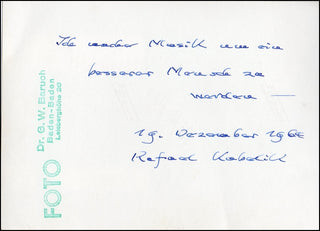 Ich mache Musik um ein
besserer Mensch zu
werden —
19. Dezember 1965
Rafael Kubelik
FOTO
Dr. G. W. Baruch
Baden-Baden